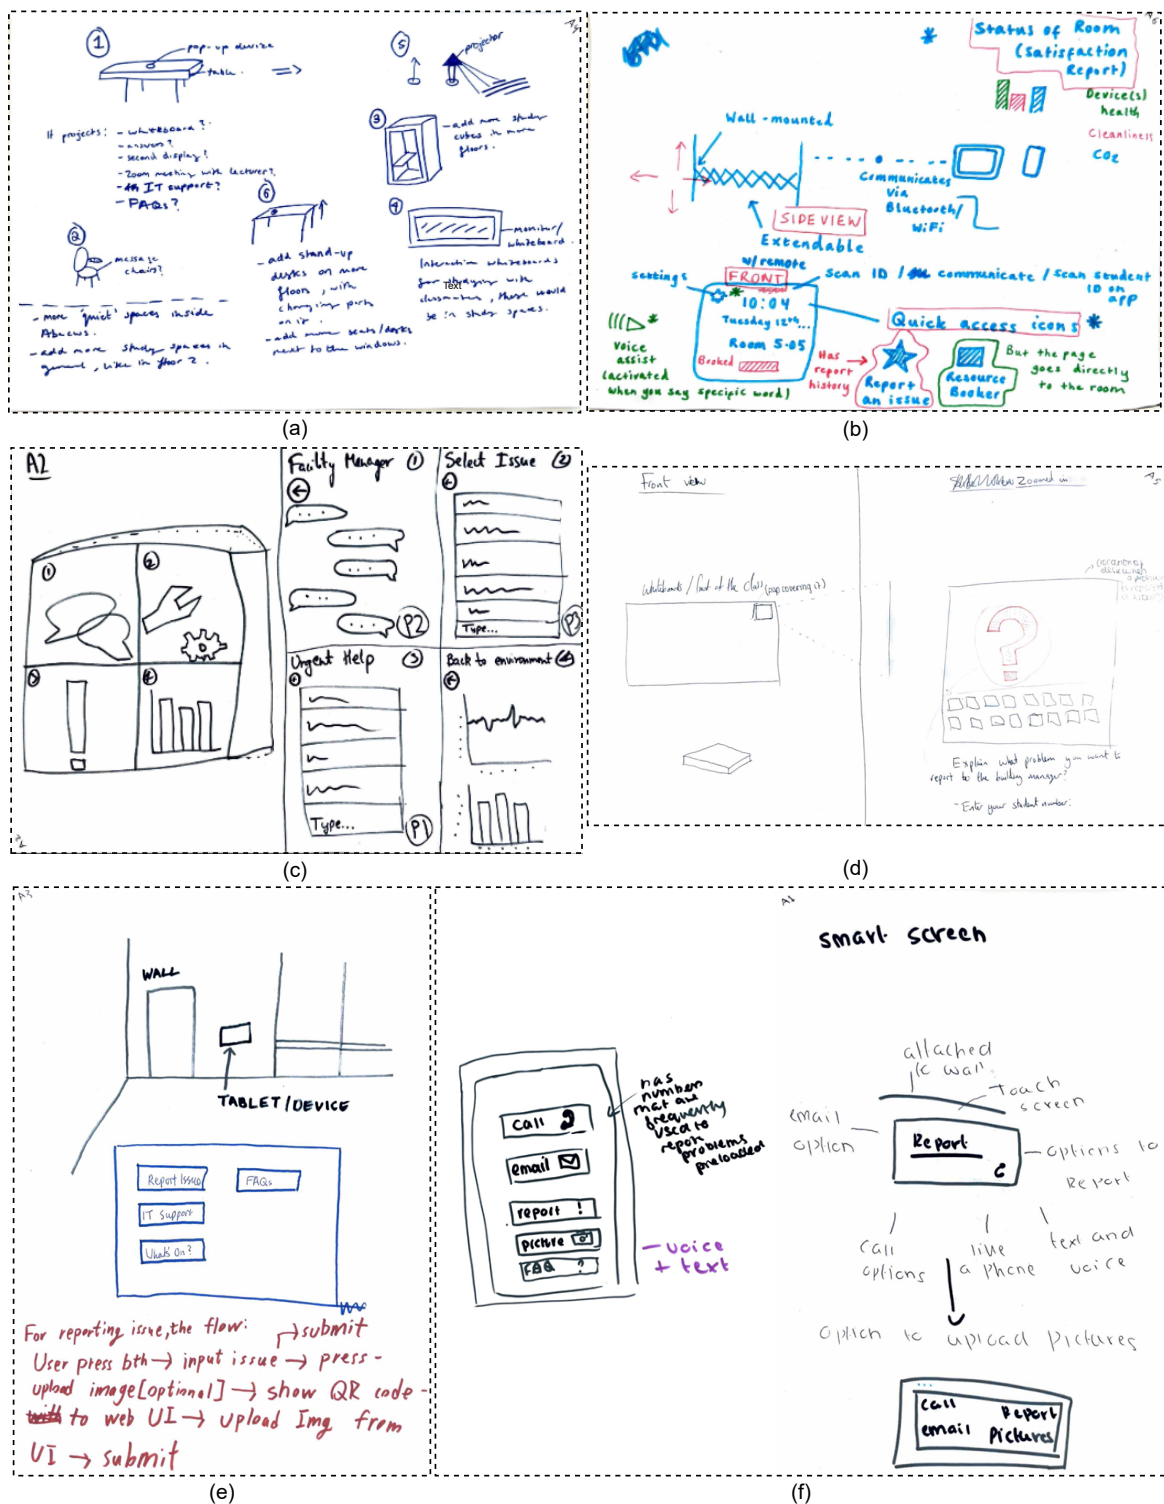 A4
1
pop-up device
table
If projects: - whiteboard?
- answers?
- second display?
- Zoom meeting with lecturer?
- IT support?
- FAQs?
2
message chair?
- more 'quiet' spaces inside
Abacws.
- add more study spaces in
general, like in floor 2.
6
- add stand-up
desks on more
floors, with
changing park
on it.
- add more seats/desks
next to the windows.
5
projector
3
- add more study
cubes in more
floors.
4
monitor/
whiteboard.
Interactive whiteboards
for studying with
Text
classmates, these would
be in study spaces.
(a)
A6
Status of Room
(Satisfaction
Report)
Device(s)
health
Cleanliness
CO2
Wall-mounted
Communicates
via
Bluetooth/
WiFi
SIDE VIEW
Extendable
w/remote
FRONT
Scan ID / communicate / Scan student
ID on
app
settings
10:04
Tuesday 12th...
Room 5.05
Booked
Quick access icons
Voice
assist
(activated
when you say specific word)
Has
report
history
Report
an issue
Resource
Booker
But the page
goes directly
to the room
(b)
A2
1
2
3
4
Facility Manager 1
P2
Select Issue 2
Type...
P3
Urgent Help 3
Type...
P1
Back to environment 4
(c)
A5
Front view
Zoomed in
Whiteboards / front of the class (not covering it)
?
Explain what problem you want to
report to the building manager?
- Enter your student number:
(d)
A3
WALL
TABLET/DEVICE
Report Issue
FAQs
IT Support
What's On?
For reporting issue, the flow:
→ submit
User press btn → input issue → press -
upload image [optional] → show QR code -
to web UI → upload Img from
UI → submit
(e)
A1
smart screen
call
email
report !
picture
FAQ ?
has
numbers
that are
frequently
used to
report
problems
preloaded
- voice
+ text
attached
to wall
Touch
screen
email
option
Report
- options to
Report
call
options
like
a phone
text and
voice
option to upload pictures
call Report
email Pictures
(f)